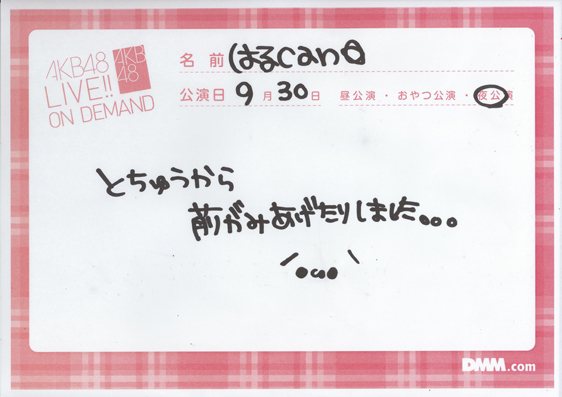 AKB48
LIVE!!
ON DEMAND
AKB
48
名 前 はるcan
公演日 9月30日 昼公演・おやつ公演・夜公演
とちゅうから
前がみあげたりしました。。。
DMM.com